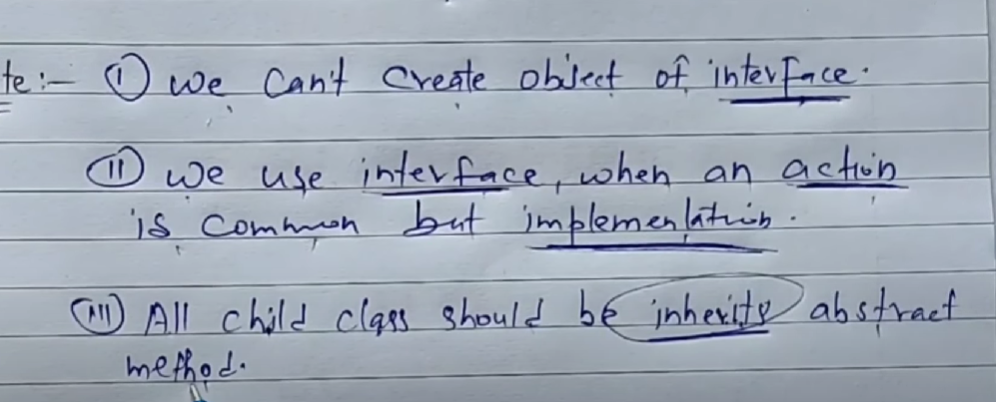 te:- (I) we can't create object of interface.
(II) we use interface, when an action
is common but implementation.
(III) All child class should be inherity abstract
method.